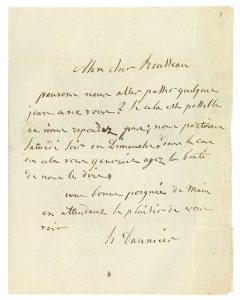 Mon cher Rousseau
pouvons nous aller passer quelques
jours avec vous? Si cela est possible
ne nous repondez pas; nous partirons
Samedi soir ou Dimanche, dans le cas
ou cela vous generait ayez la bonté
de nous le dire.
une bonne poignée de main
en attendant le plaisir de vous
voir
h Daumier